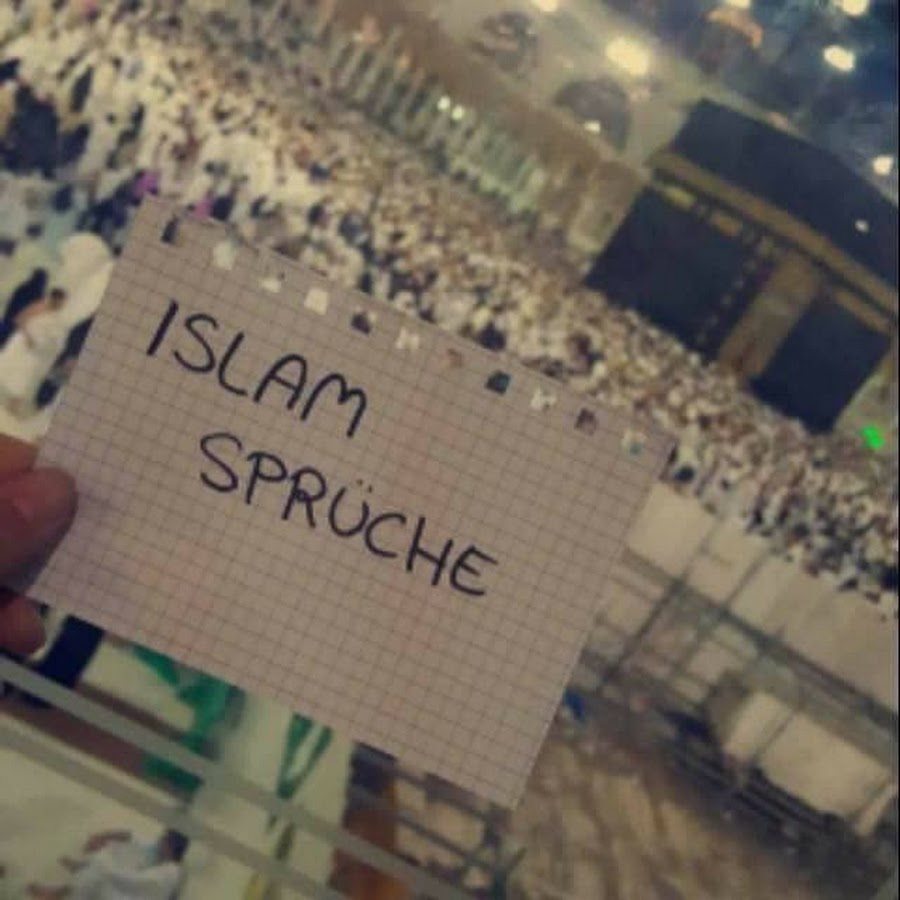 ISLAM
SPRÜCHE